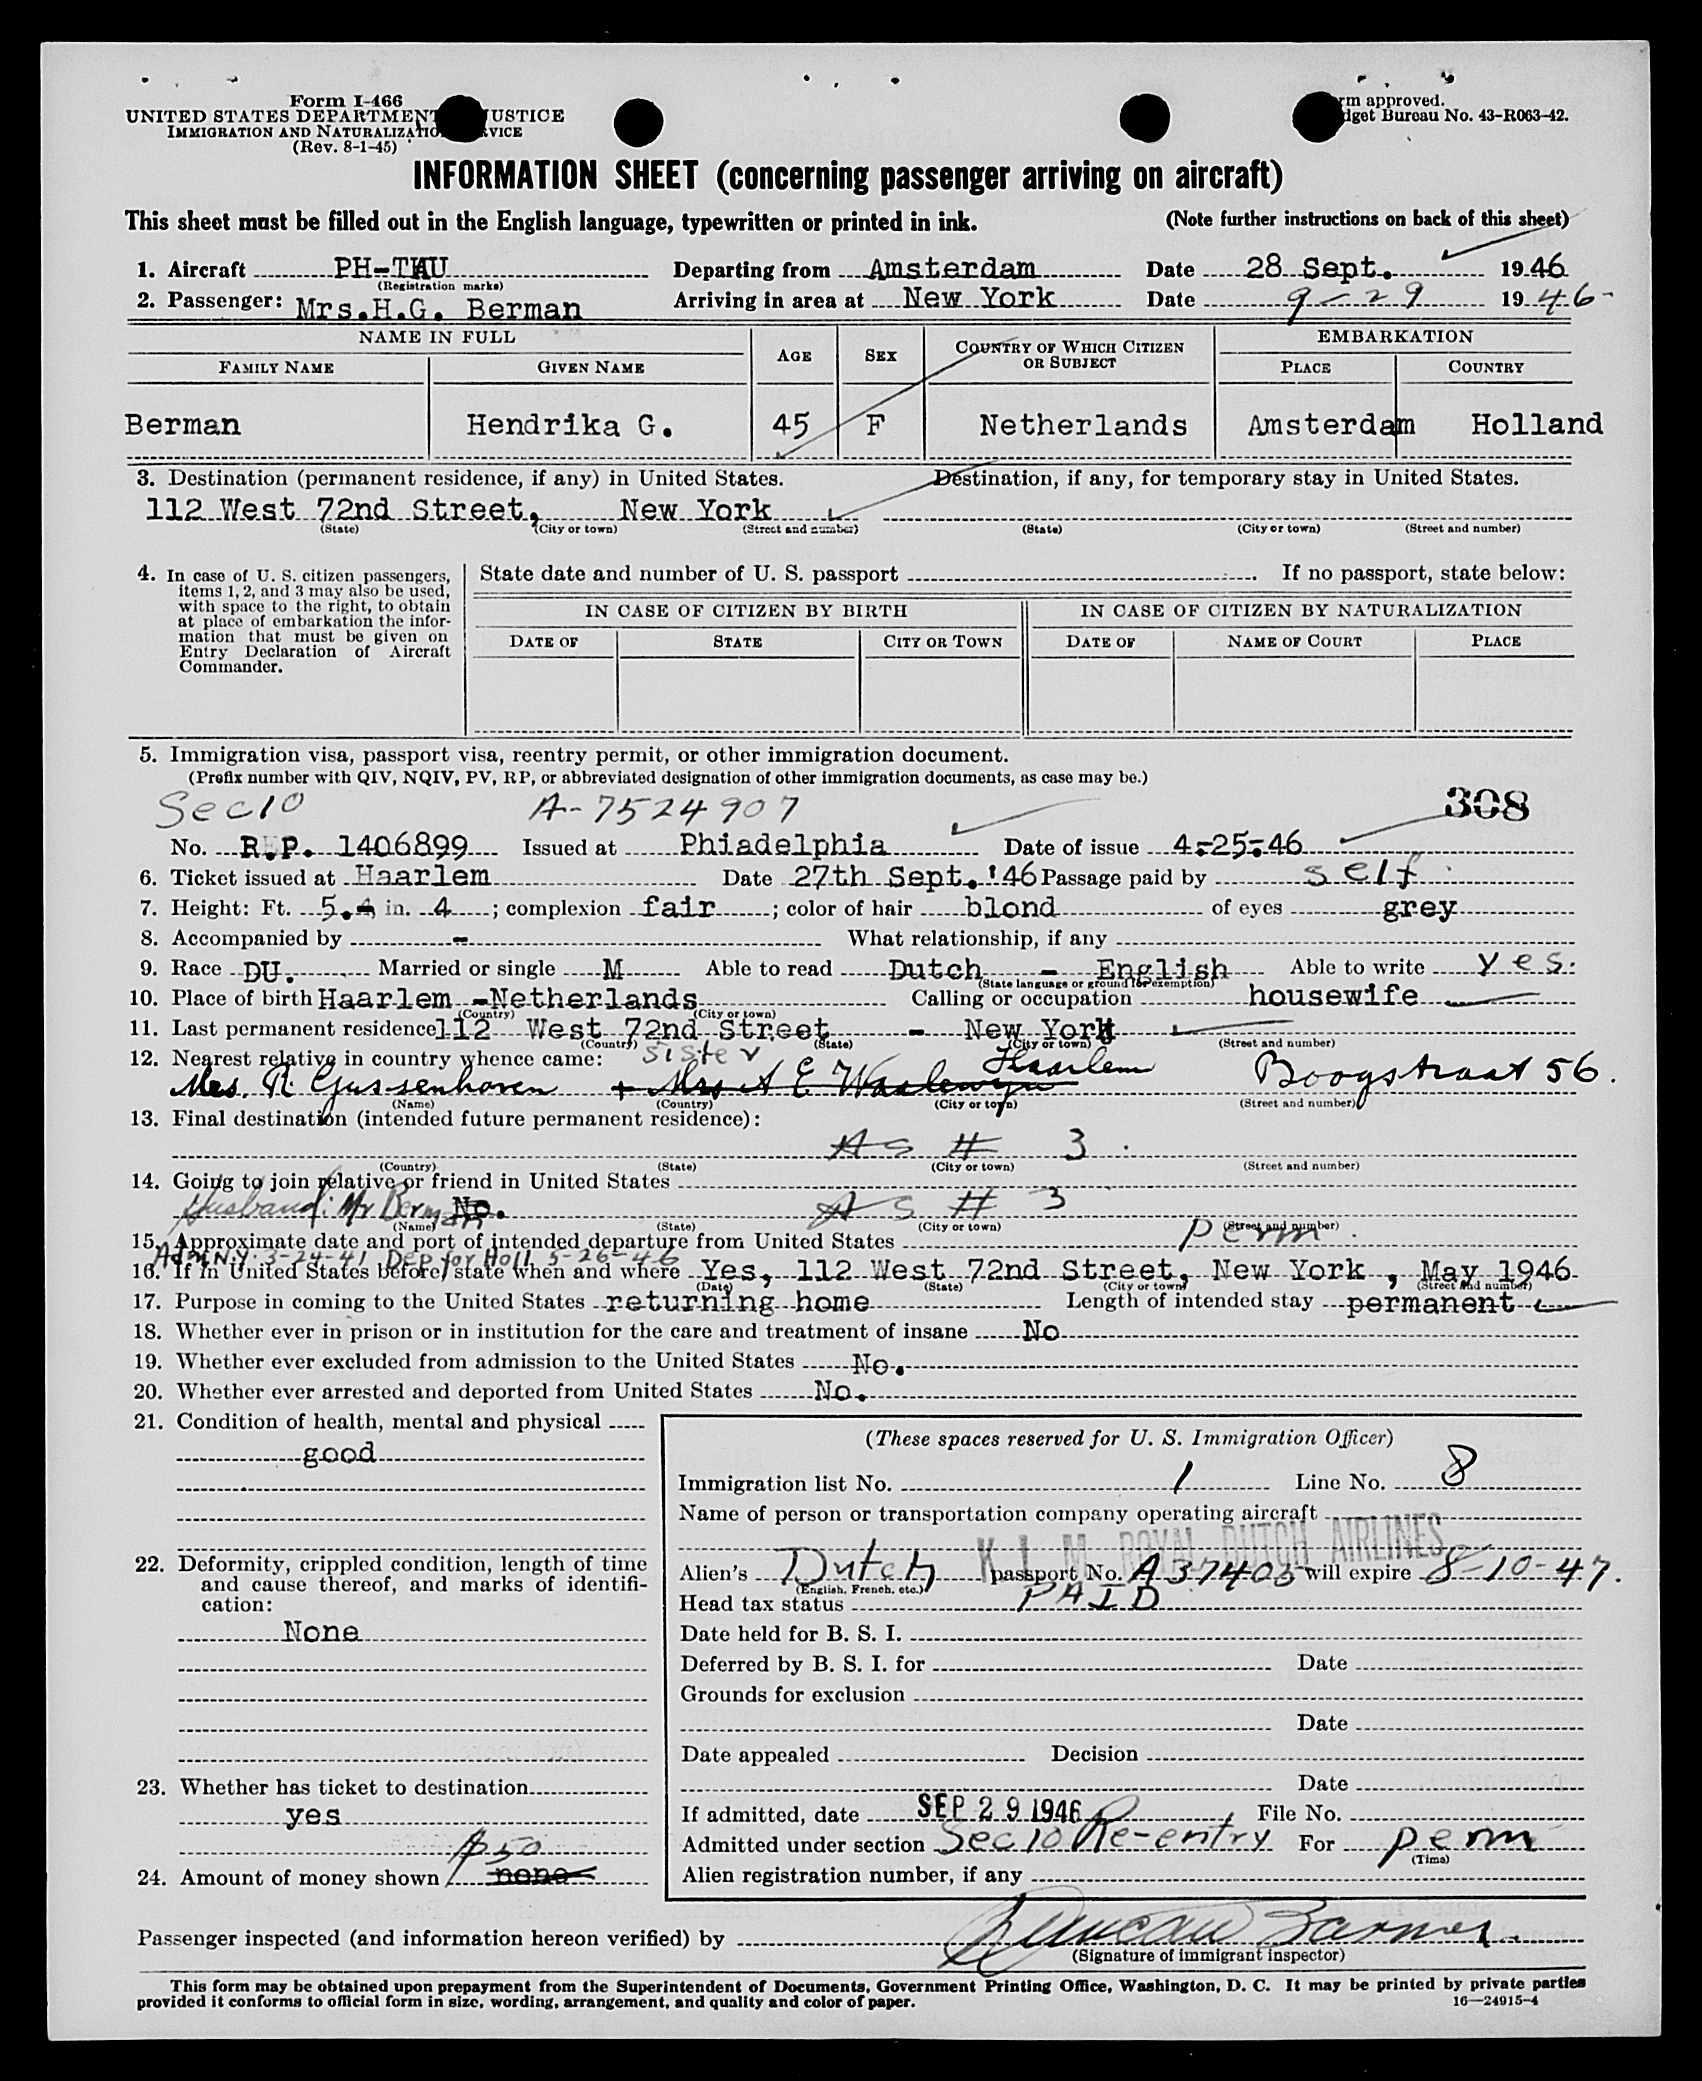 Form I-466
UNITED STATES DEPARTMENT JUSTICE
IMMIGRATION AND NATURALIZATION SERVICE
(Rev. 8-1-45)
Form approved.
Budget Bureau No. 43-R063-42.
INFORMATION SHEET (concerning passenger arriving on aircraft)
This sheet must be filled out in the English language, typewritten or printed in ink. (Note further instructions on back of this sheet)
1. Aircraft PH-TAU Departing from Amsterdam Date 28 Sept. 1946
(Registration marks)
2. Passenger: Mrs.H.G. Berman Arriving in area at New York Date 9-29 1946-
NAME IN FULL AGE SEX COUNTRY OF WHICH CITIZEN OR SUBJECT EMBARKATION
FAMILY NAME GIVEN NAME PLACE COUNTRY
Berman Hendrika G. 45 F Netherlands Amsterdam Holland
3. Destination (permanent residence, if any) in United States. Destination, if any, for temporary stay in United States.
112 West 72nd Street, New York
(State) (City or town) (Street and number) (State) (City or town) (Street and number)
4. In case of U. S. citizen passengers, items 1, 2, and 3 may also be used, with space to the right, to obtain at place of embarkation the information that must be given on Entry Declaration of Aircraft Commander.
State date and number of U. S. passport If no passport, state below:
IN CASE OF CITIZEN BY BIRTH IN CASE OF CITIZEN BY NATURALIZATION
DATE OF STATE CITY OR TOWN DATE OF NAME OF COURT PLACE
5. Immigration visa, passport visa, reentry permit, or other immigration document.
(Prefix number with QIV, NQIV, PV, RP, or abbreviated designation of other immigration documents, as case may be.)
Sec10 A-7524907 308
No. R.P. 1406899 Issued at Phiadelphia Date of issue 4-25-46
6. Ticket issued at Haarlem Date 27th Sept.'46 Passage paid by self
7. Height: Ft. 5. in. 4; complexion fair; color of hair blond of eyes grey
8. Accompanied by - What relationship, if any
9. Race DU. Married or single M Able to read Dutch - English Able to write yes.
(State language or ground for exemption)
10. Place of birth Haarlem -Netherlands Calling or occupation housewife
(Country) (City or town)
11. Last permanent residence 112 West 72nd Street - New York
(Country) (State) (City or town) (Street and number)
12. Nearest relative in country whence came: sister
Mes. R. Gussenhoven + Mrs A E Waalewyn Haarlem Boogstraat 56.
(Name) (Country) (City or town) (Street and number)
13. Final destination (intended future permanent residence):
AS # 3.
(Country) (State) (City or town) (Street and number)
14. Going to join relative or friend in United States
Husband: Mr Berman No. AS # 3
(Name) (State) (City or town) (Street and number)
15. Approximate date and port of intended departure from United States perm.
Adm N.Y. 3-24-41 Dep for Holl 5-26-46
16. If in United States before, state when and where Yes, 112 West 72nd Street, New York , May 1946
(Date) (State) (City or town) (Street and number)
17. Purpose in coming to the United States returning home Length of intended stay permanent
18. Whether ever in prison or in institution for the care and treatment of insane No
19. Whether ever excluded from admission to the United States No.
20. Whether ever arrested and deported from United States No.
21. Condition of health, mental and physical
good
22. Deformity, crippled condition, length of time and cause thereof, and marks of identification:
None
23. Whether has ticket to destination
yes
$50
24. Amount of money shown none
(These spaces reserved for U. S. Immigration Officer)
Immigration list No. 1 Line No. 8
Name of person or transportation company operating aircraft
K L M ROYAL DUTCH AIRLINES
Alien's Dutch passport No. A37403 will expire 8-10-47.
(English, French, etc.)
Head tax status PAID
Date held for B. S. I.
Deferred by B. S. I. for Date
Grounds for exclusion
Date
Date appealed Decision
Date
If admitted, date SEP 29 1946 File No.
Admitted under section Sec 10 Re-entry For perm
(Time)
Alien registration number, if any
Passenger inspected (and information hereon verified) by
(Signature of immigrant inspector)
This form may be obtained upon prepayment from the Superintendent of Documents, Government Printing Office, Washington, D. C. It may be printed by private parties
provided it conforms to official form in size, wording, arrangement, and quality and color of paper. 16—24915-4